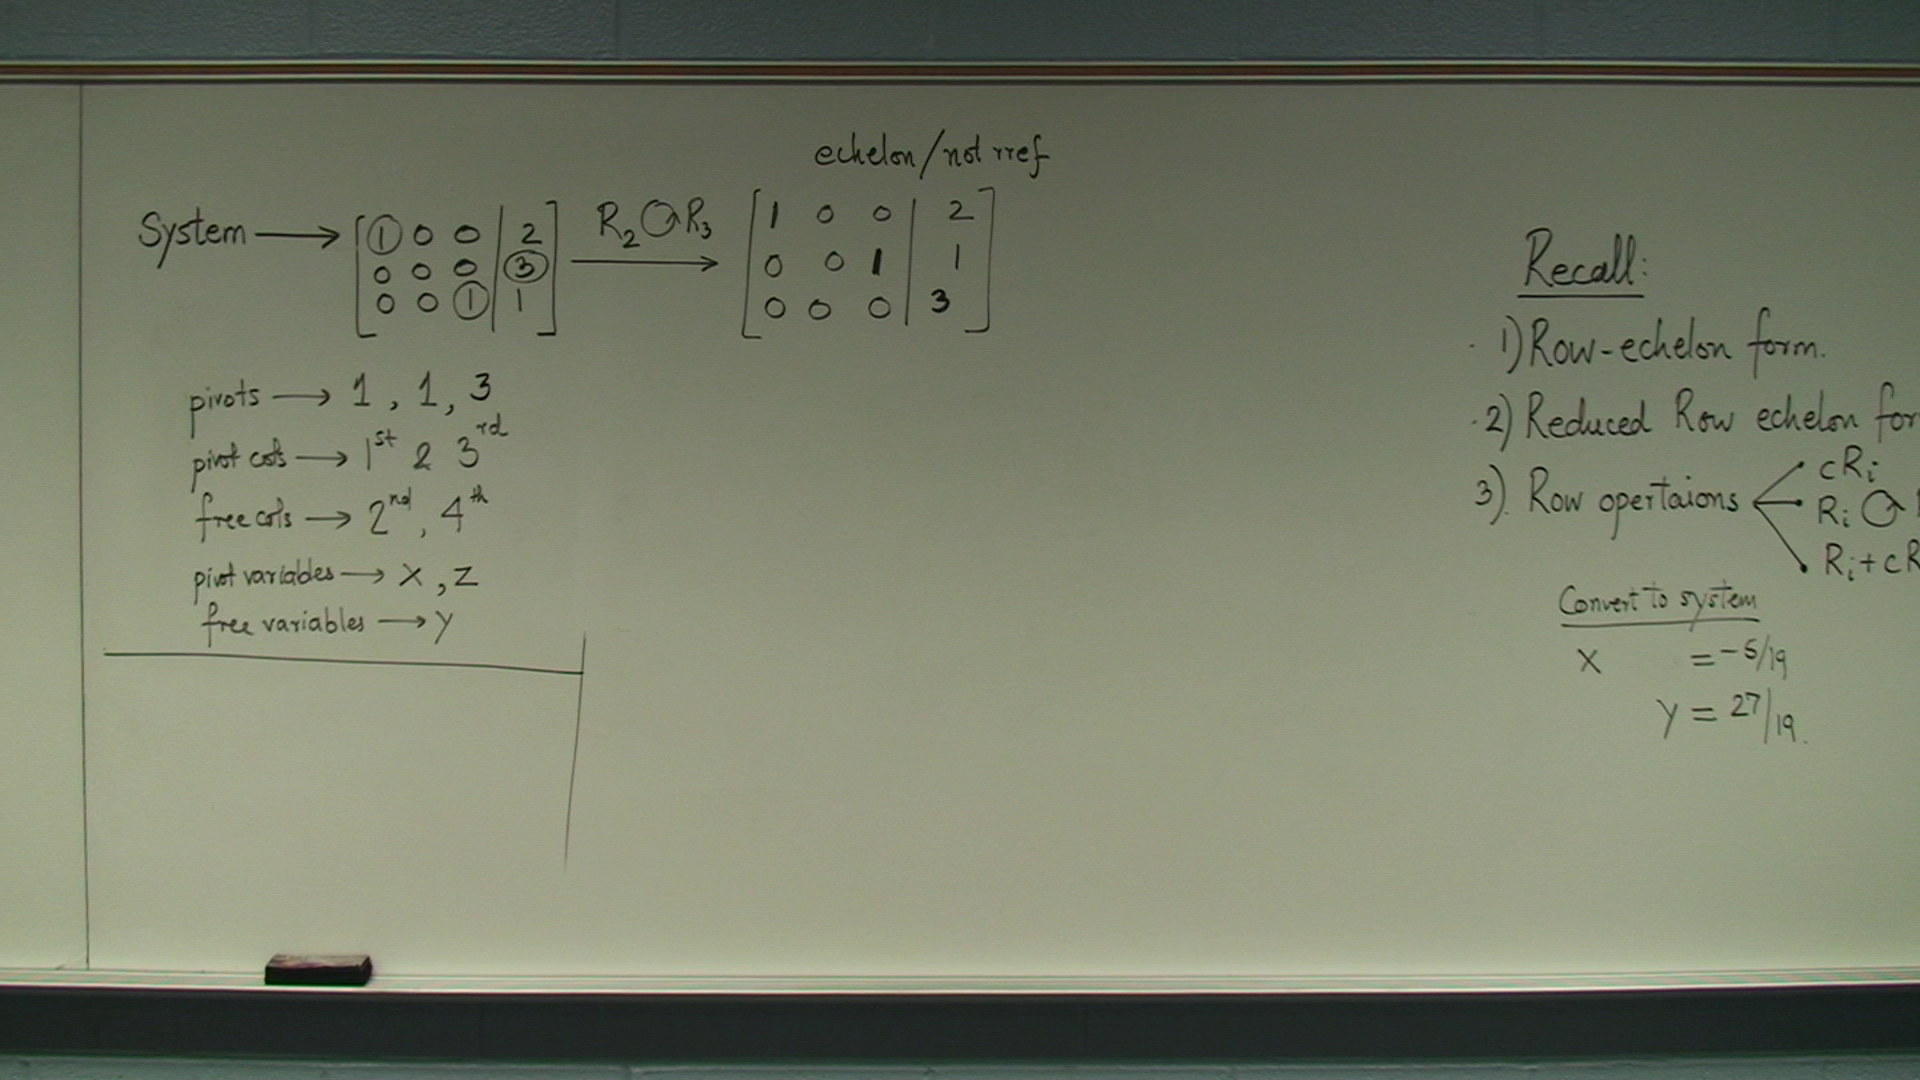 echelon/not rref
System → [ 1 0 0 | 2 ] R₂ ↻ R₃ → [ 1 0 0 | 2 ]
[ 0 0 0 | 3 ] [ 0 0 1 | 1 ]
[ 0 0 1 | 1 ] [ 0 0 0 | 3 ]
pivots → 1, 1, 3
pivot cols → 1st 2 3rd
free cols → 2nd, 4th
pivot variables → x, z
free variables → y
Recall:
1) Row-echelon form.
2) Reduced Row echelon for
3). Row opertaions
cRᵢ
Rᵢ ↻
Rᵢ + cR
Convert to system
x = -5/19
y = 27/19.